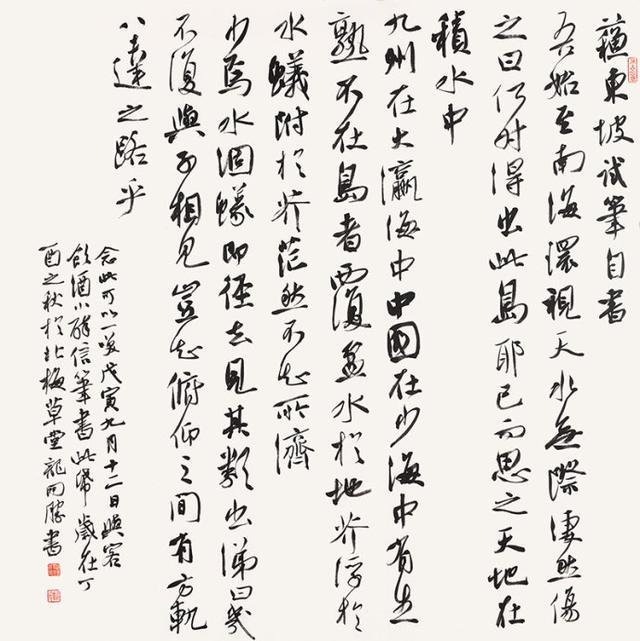 蘇東坡試筆自書
吾始至南海環視天水無際悽然傷
之曰何時得出此島耶已而思之天地在
積水中
九州在大瀛海中中國在少海中有生
熟不在島者覆盆水於地芥浮於
水蟻附於芥茫然不知所濟
少焉水涸蟻即徑去見其類出涕曰幾
不復與子相見豈知俯仰之間有方軌
八達之路乎
念此可以一笑戊寅九月十二日與客
飲酒小醉信筆書此紙歲在丁
酉之秋於北梅草堂龍開勝書